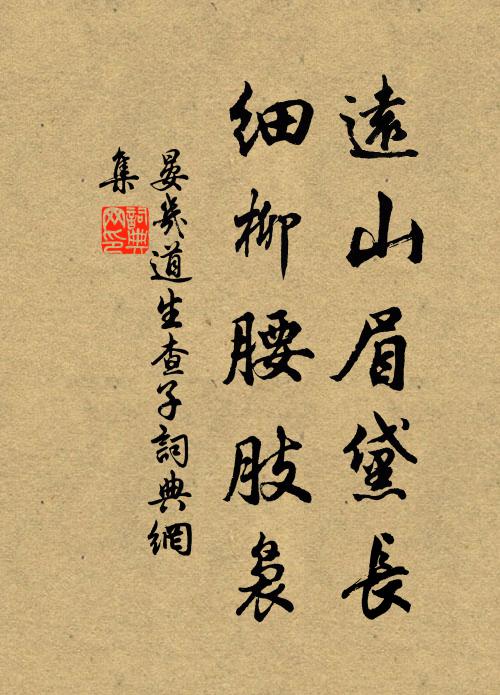 遠山眉黛長
細柳腰肢裊
晏幾道生查子詞典網
集
詞典網印